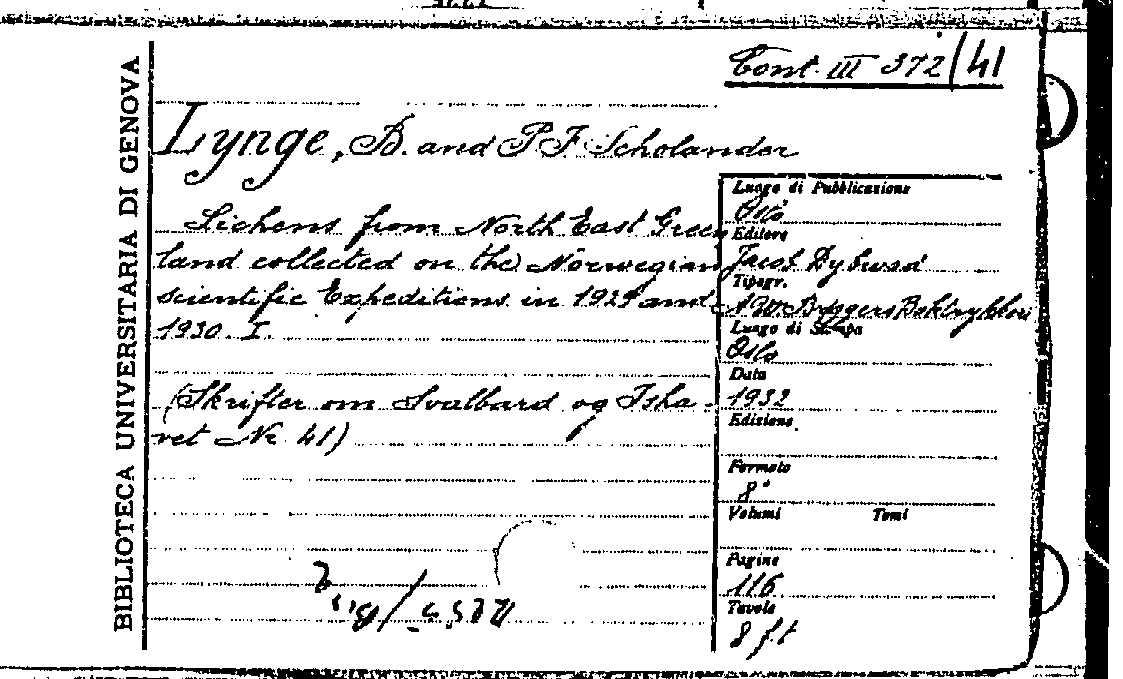 BIBLIOTECA UNIVERSITARIA DI GENOVA
Cont. III 372/41
Lynge, B. and P F Scholander
Lichens from North East Green
land collected on the Norwegian
scientific Expeditions in 1929 and
1930. I.
(Skrifter om Svalbard og Isha-
vet Nr. 41)
Luogo di Pubblicazione
Oslo
Editore
Jacob Dybwad
Tipogr.
A W. Brøggers Boktrykkeri
Luogo di Stampa
Oslo
Data
1932
Edizione
Formato
8°
Volumi Tomi
Pagine
116
Tavole
8 f.t